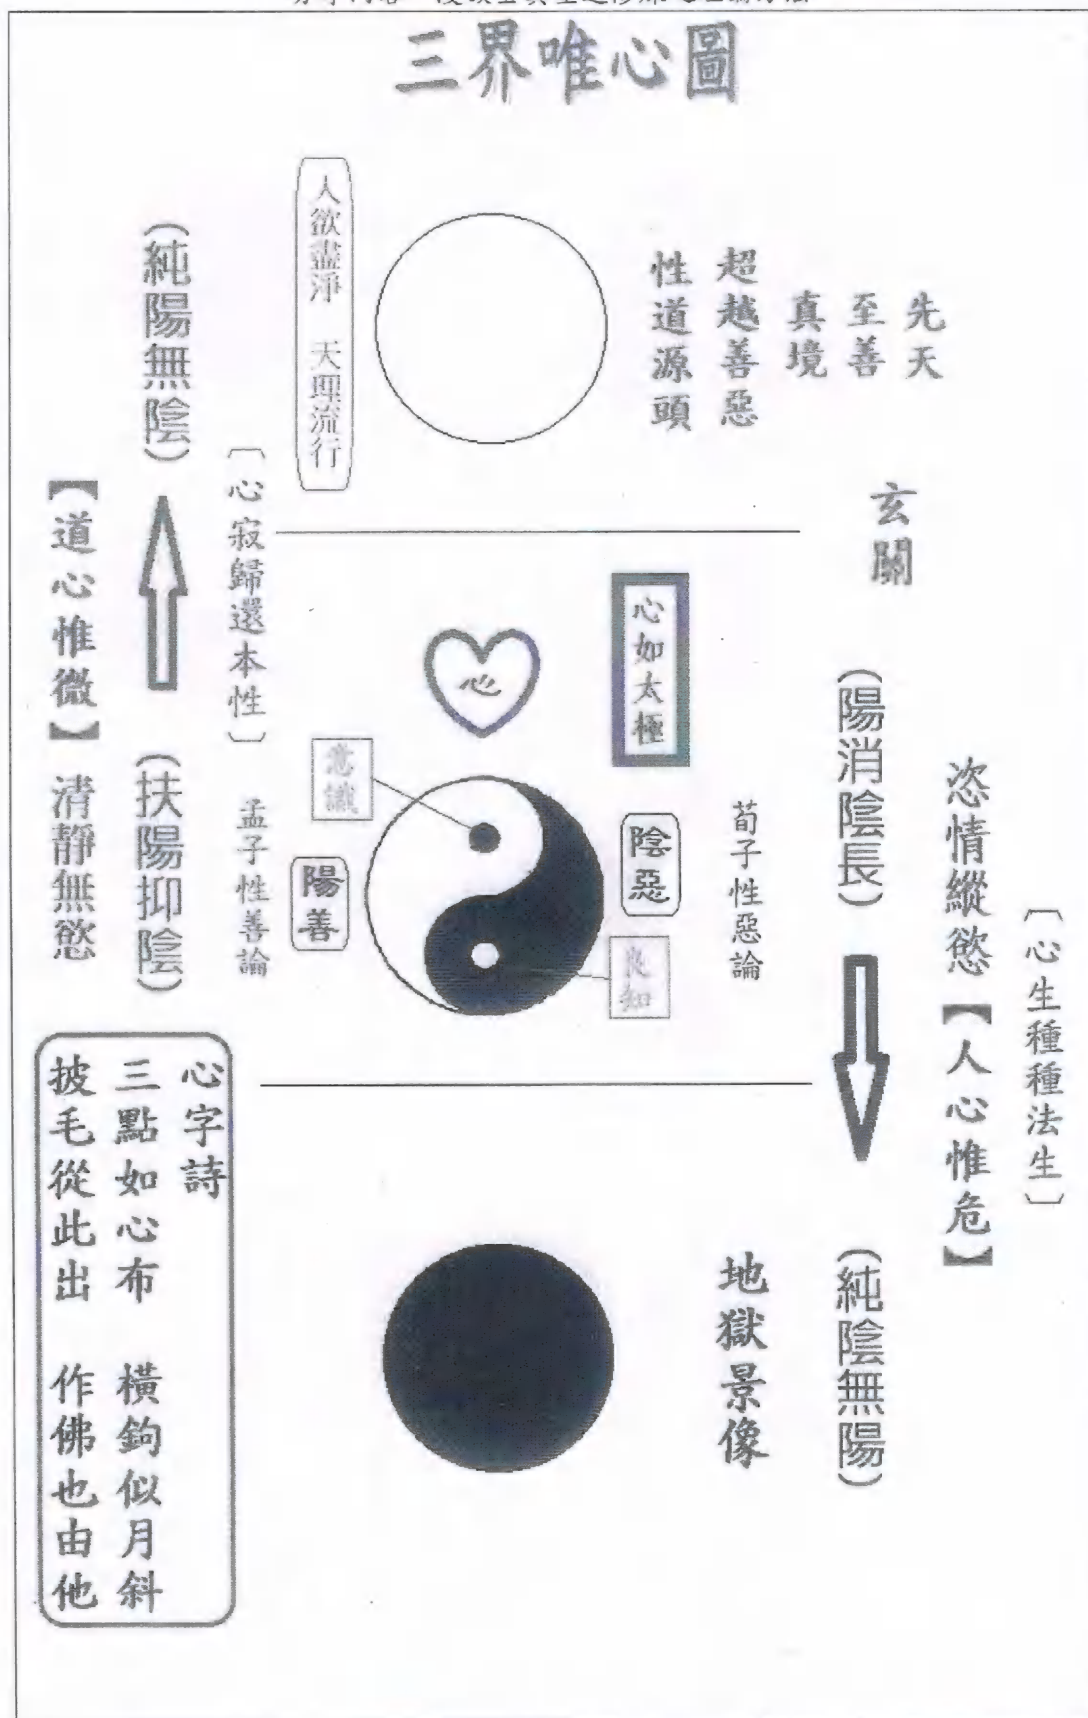 三界唯心圖
先天
至善
真境
超越善惡
性道源頭
人欲盡淨 天理流行
(純陽無陰)
玄關
〔心寂歸還本性〕
【道心惟微】清靜無慾
(扶陽抑陰)
心如太極
心
意識
陽善
陰惡
良知
孟子性善論
荀子性惡論
(陽消陰長)
恣情縱慾【人心惟危】
〔心生種種法生〕
(純陰無陽)
地獄景像
心字詩
三點如心布 橫鉤似月斜
披毛從此出 作佛也由他